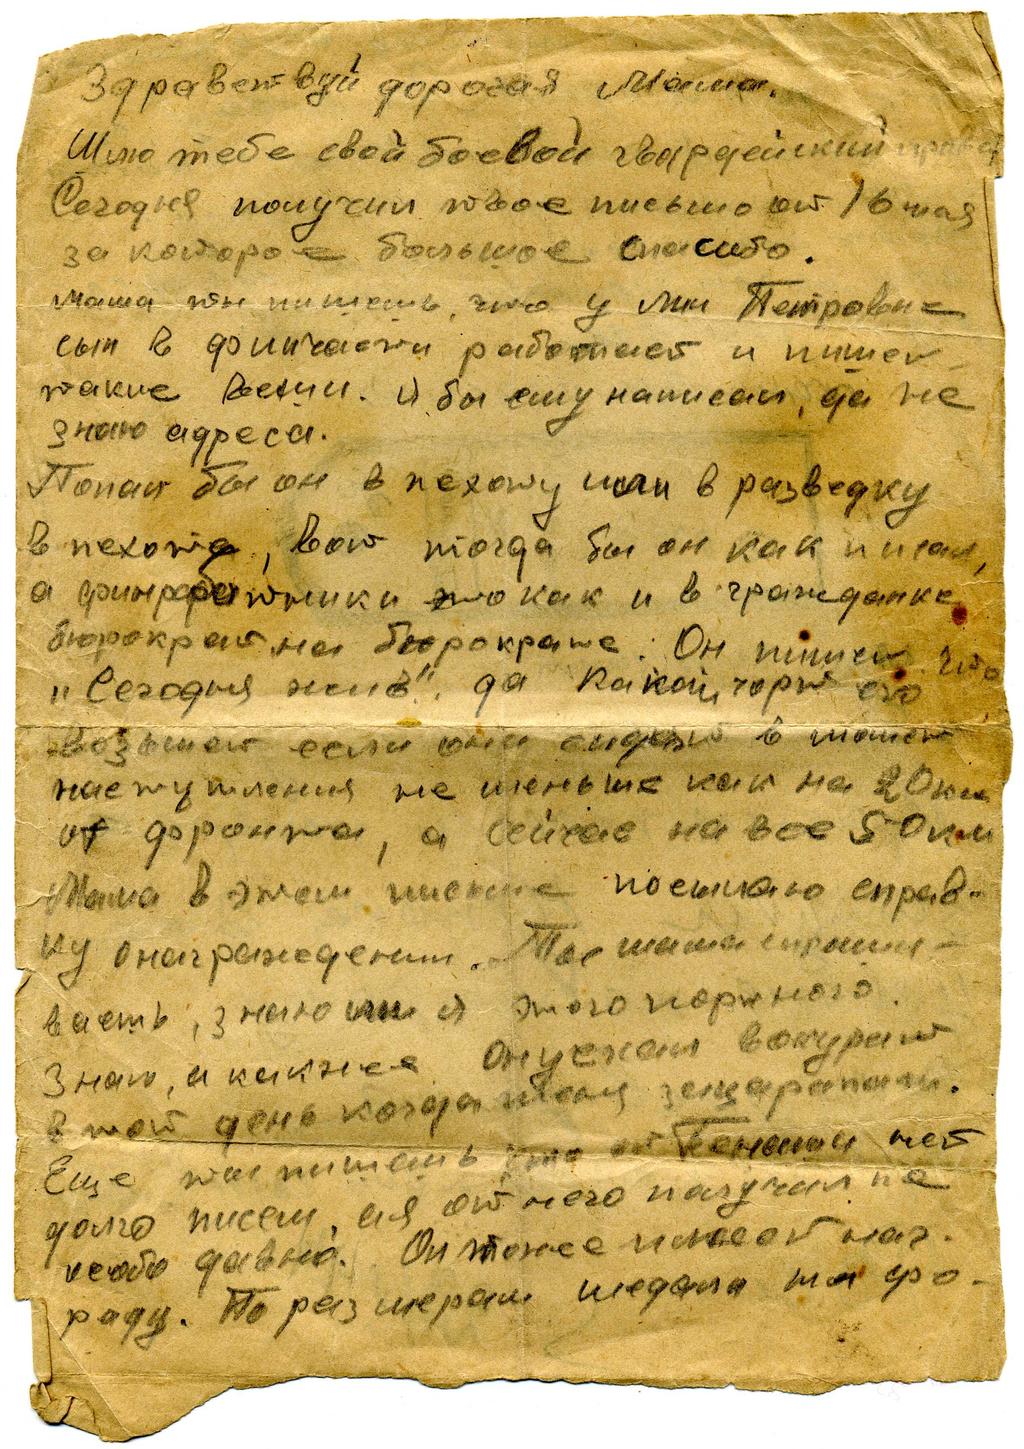 Здравствуй дорогая Маша.
Шлю тебе свой боевой гвардейский привет
Сегодня получил твое письмо от 16 мая
за которое большое спасибо.
Маша ты пишешь, что у Мил Петровне
сын в финчасти работает и пишет
такие вещи. Я бы ему написал, да не
знаю адреса.
Попал бы он в пехоту или в разведку
в пехоте, вот тогда бы он как писал,
а финработники это как и в гражданке
бюрократ на бюрократе. Он пишет что
"Сегодня жив", да какой чорт его
возьмет если они сидят в момент
наступления не меньше как на 20 км
от фронта, а сейчас на все 50 км
Маша в этом письме посылаю справ-
ку о награждении. Ты Маша спраши-
ваешь, знаю ли я этого
Знаю, а как же. Он уехал вокурат
в тот день когда меня зацарапали.
Еще ты пишешь что от нет
долго писем, а я от него получил не
особо давно. Он тоже имеет наг-
раду. По размерам медаль на фо-